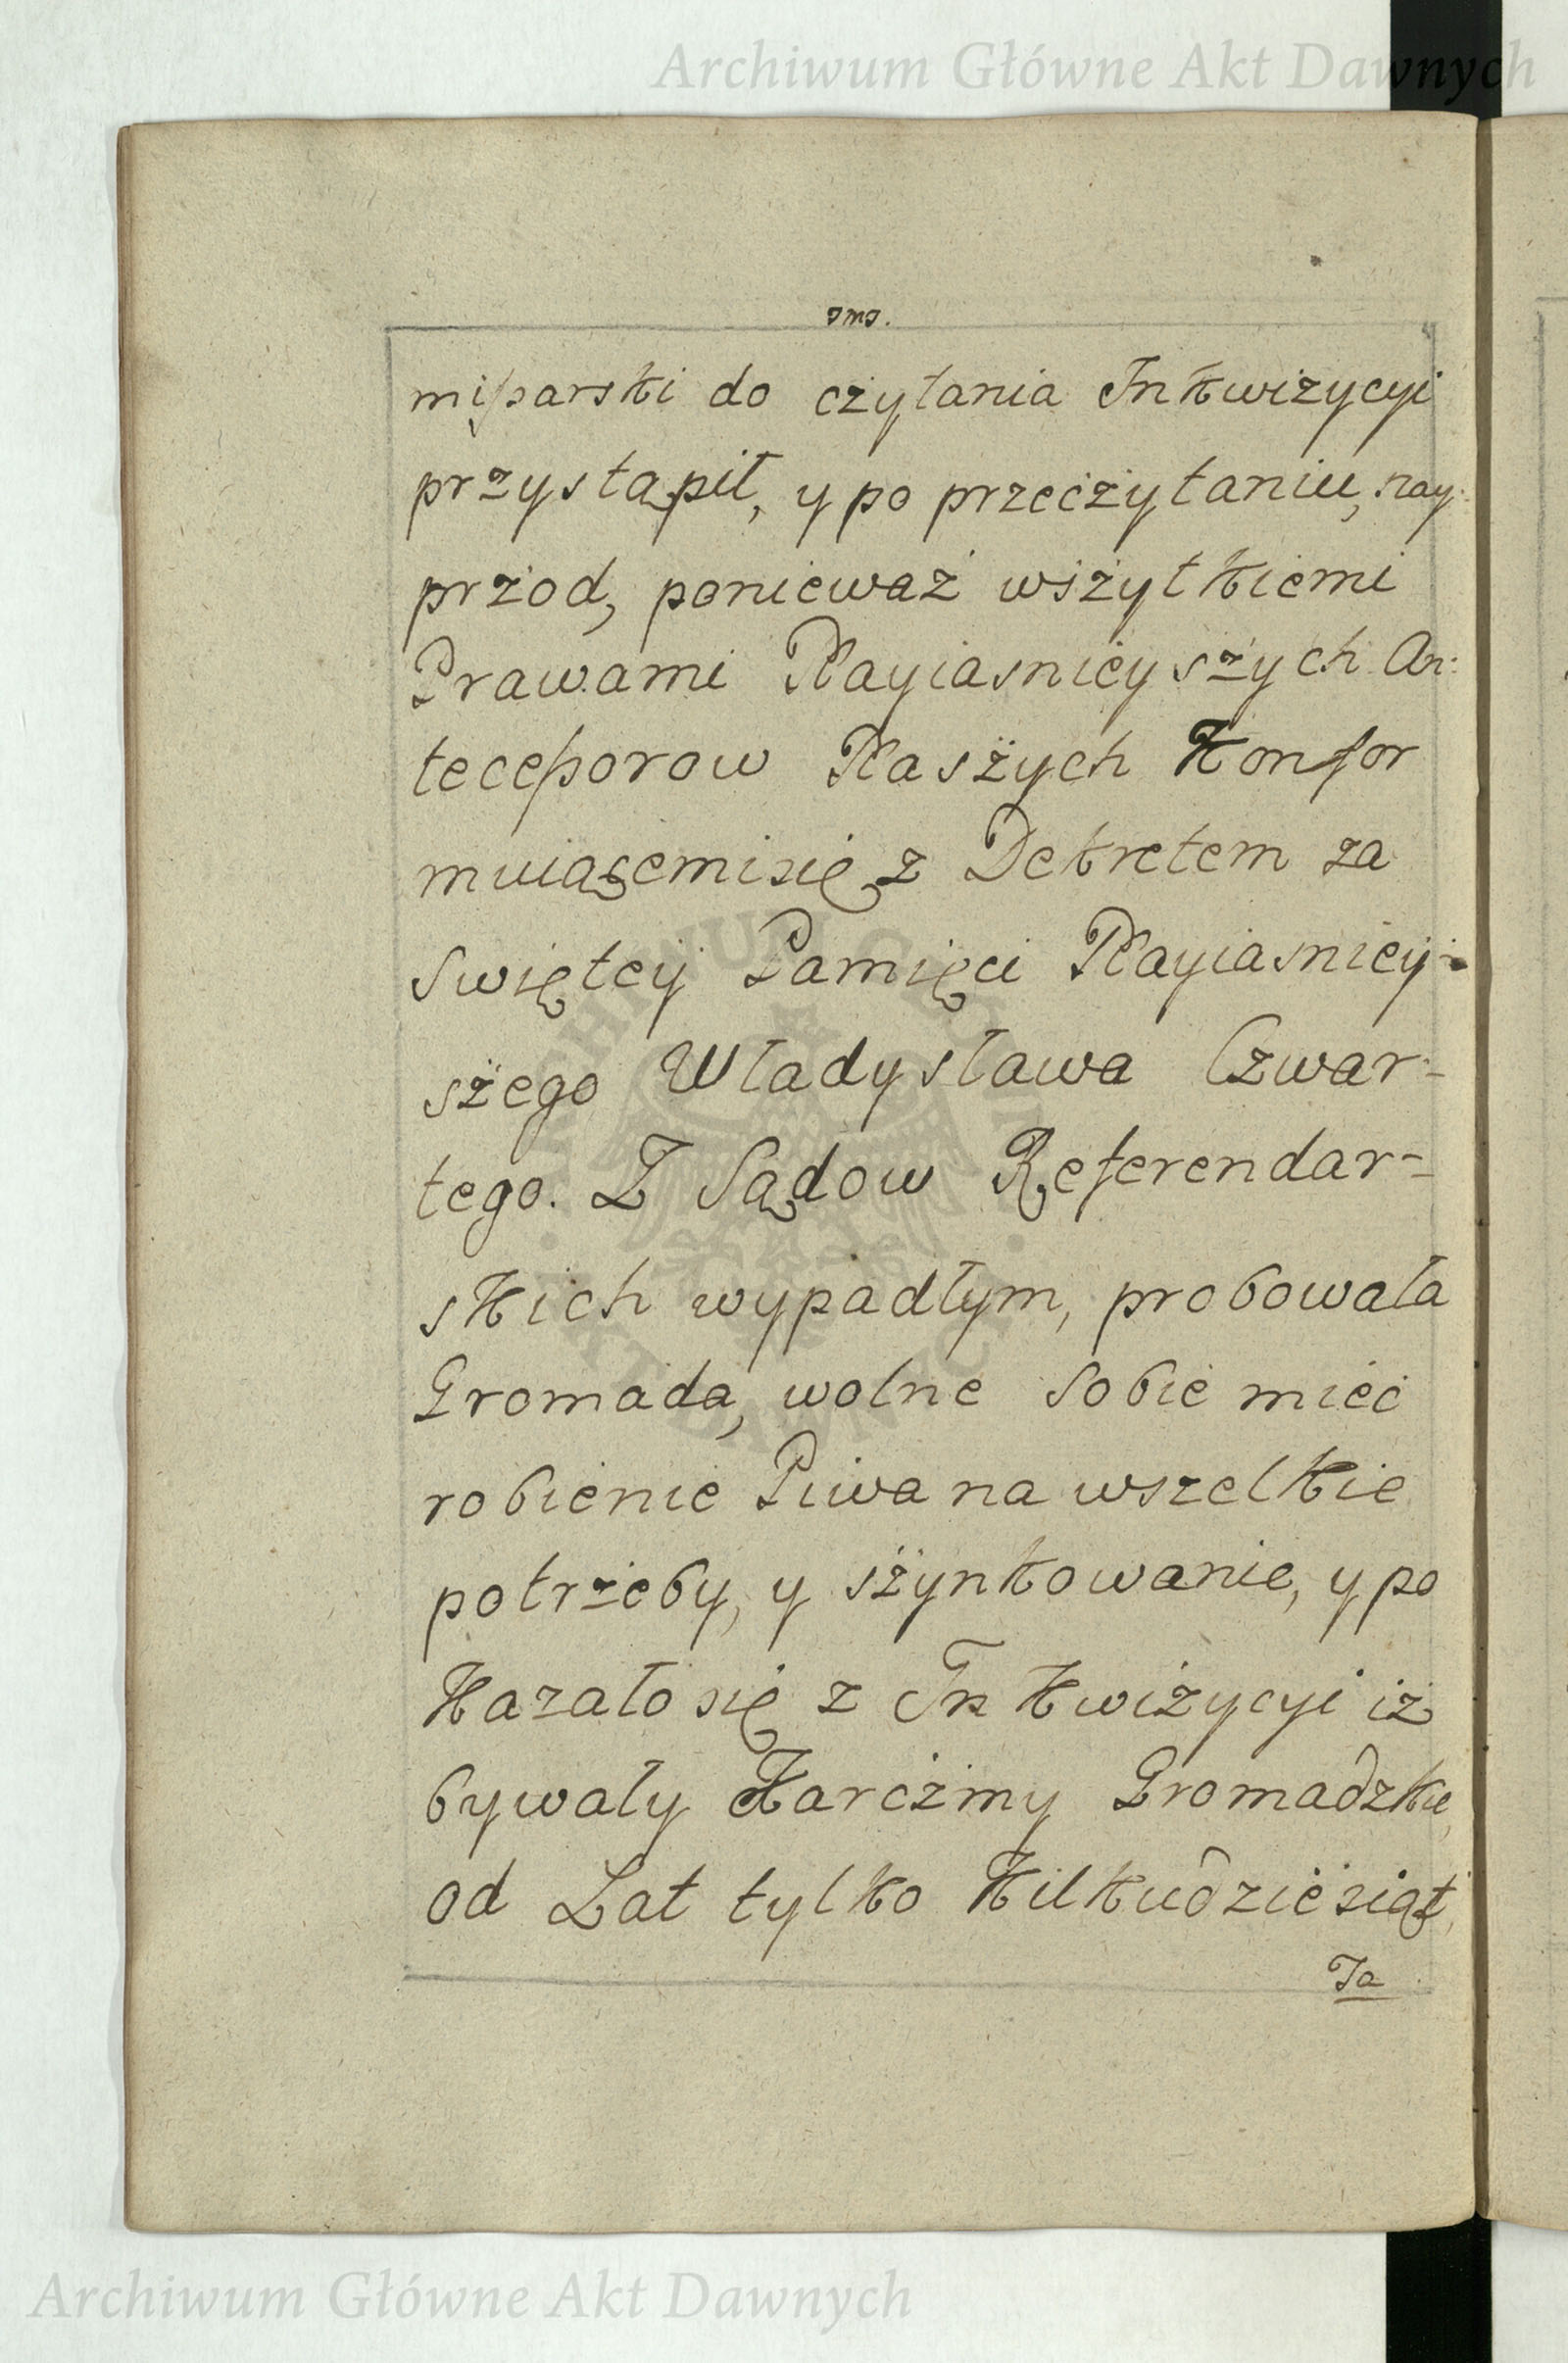 Archiwum Główne Akt Dawnych
JMJ.
missarski do czytania Inkwizycyi
przystąpił, y po przeczytaniu, nay-
przod, ponieważ wszytkiemi
Prawami Nayiasnieyszych An:
tecessorow Naszych Konfor
muiącemi się z Dekretem za
Swiętey Pamięci Nayiasniey-
szego Władysława Czwar-
tego. Z Sądow Referendar-
skich wypadłym, probowała
Gromada, wolne Sobie mieć
robienie Piwa na wszelkie
potrzeby, y szynkowanie, y po
kazało się z Inkwizycyi iż
bywały Karczmy Gromadzkie,
od Lat tylko Kilkudziesiąt,
Ja
Archiwum Główne Akt Dawnych